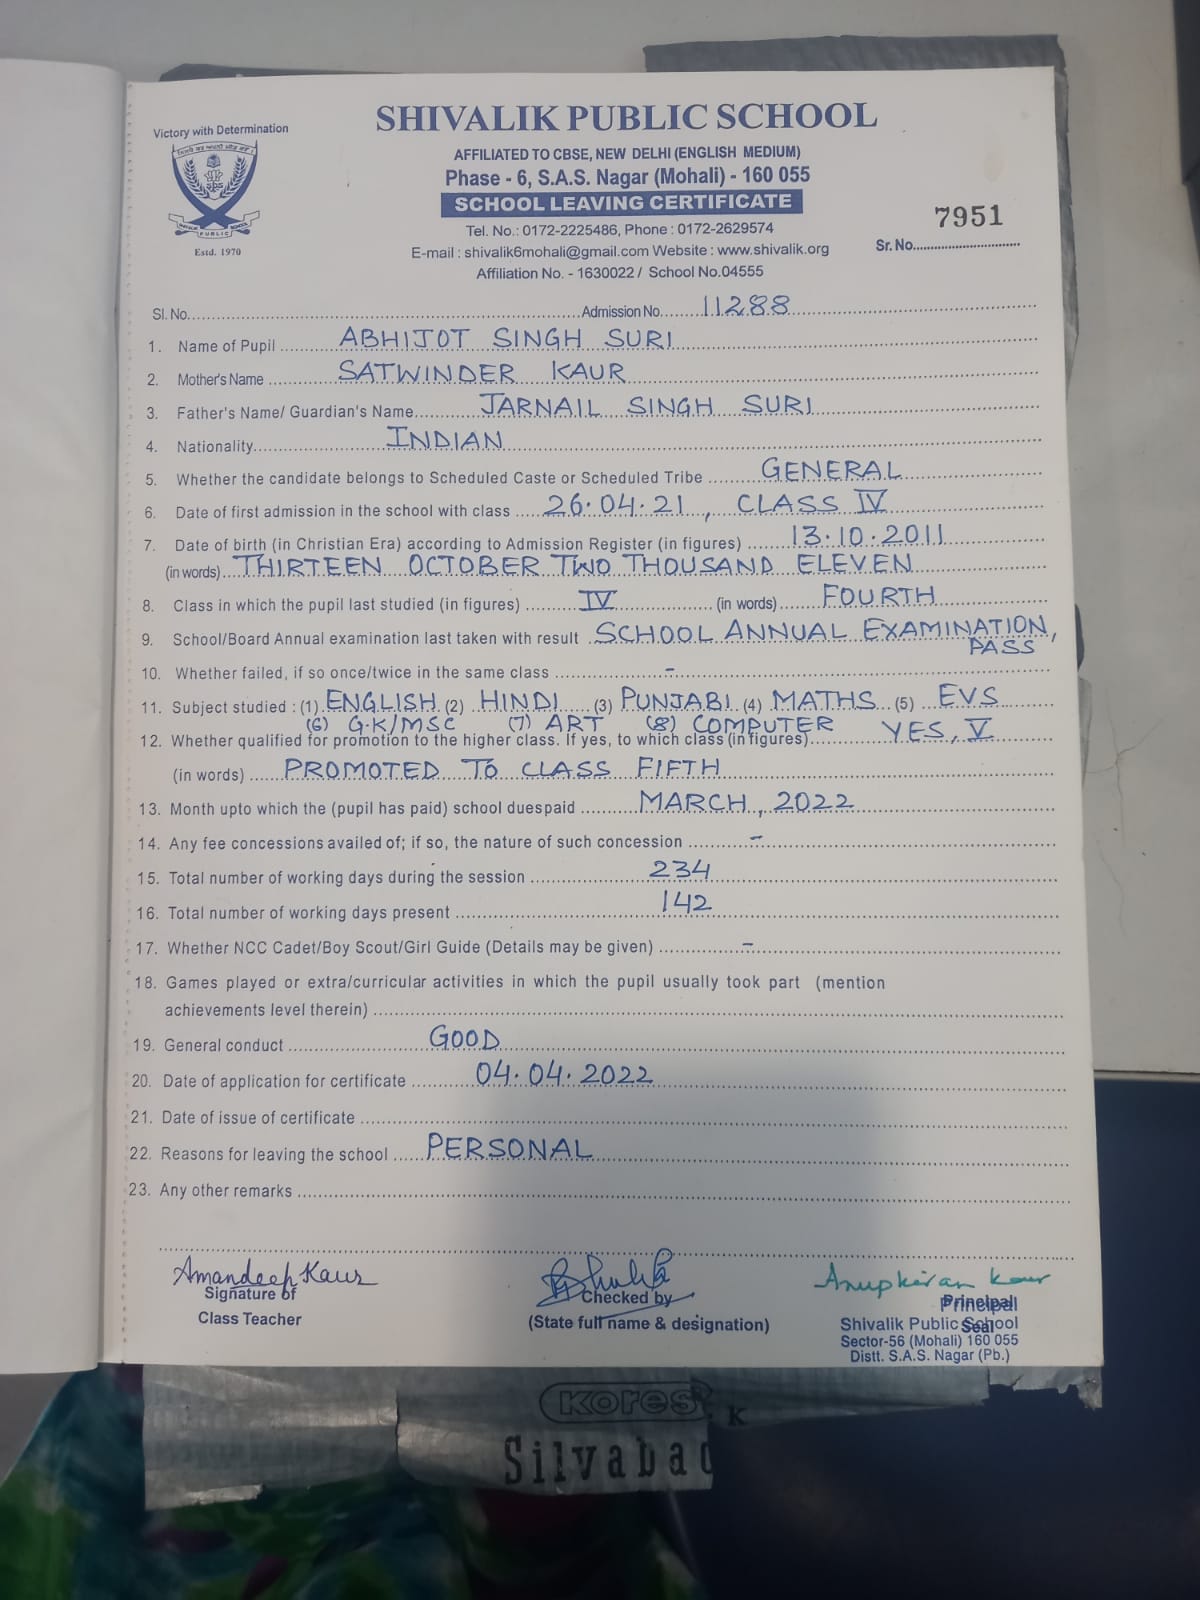 Victory with Determination
SHIVALIK PUBLIC SCHOOL
SHIVALIK
PUBLIC
SCHOOL
Estd. 1970
AFFILIATED TO CBSE, NEW DELHI (ENGLISH MEDIUM)
Phase - 6, S.A.S. Nagar (Mohali) - 160 055
SCHOOL LEAVING CERTIFICATE
Tel. No.: 0172-2225486, Phone : 0172-2629574
E-mail : shivalik6mohali@gmail.com Website : www.shivalik.org
Affiliation No. - 1630022 / School No.04555
7951
Sr. No..............................
Sl. No................................................Admission No........11288
1. Name of Pupil ........ABHIJOT SINGH SURI
2. Mother's Name ........SATWINDER KAUR
3. Father's Name/ Guardian's Name........JARNAIL SINGH SURI
4. Nationality........INDIAN
5. Whether the candidate belongs to Scheduled Caste or Scheduled Tribe ........GENERAL
6. Date of first admission in the school with class ....26.04.21, CLASS IV
7. Date of birth (in Christian Era) according to Admission Register (in figures) ........13.10.2011
(in words)..THIRTEEN OCTOBER TWO THOUSAND ELEVEN
8. Class in which the pupil last studied (in figures) ........IV (in words).....FOURTH
9. School/Board Annual examination last taken with result ..SCHOOL ANNUAL EXAMINATION,
PASS
10. Whether failed, if so once/twice in the same class ........-
11. Subject studied : (1) ENGLISH (2) HINDI (3) PUNJABI (4) MATHS (5) EVS
(6) G.K/MSC (7) ART (8) COMPUTER
12. Whether qualified for promotion to the higher class. If yes, to which class (in figures)........YES, V
(in words) .....PROMOTED TO CLASS FIFTH
13. Month upto which the (pupil has paid) school duespaid ........MARCH, 2022
14. Any fee concessions availed of; if so, the nature of such concession ........-
15. Total number of working days during the session ........234
16. Total number of working days present ........142
17. Whether NCC Cadet/Boy Scout/Girl Guide (Details may be given) ........-
18. Games played or extra/curricular activities in which the pupil usually took part (mention
achievements level therein) ........
19. General conduct ........GOOD
20. Date of application for certificate ........04.04.2022
21. Date of issue of certificate ........
22. Reasons for leaving the school .....PERSONAL
23. Any other remarks ........
Amandeep Kaur
Signature of
Class Teacher
Checked by
(State full name & designation)
Anupkiran Kaur
Principal
Seal
Shivalik Public School
Sector-56 (Mohali) 160 055
Distt. S.A.S. Nagar (Pb.)
kores
K
Silvabac